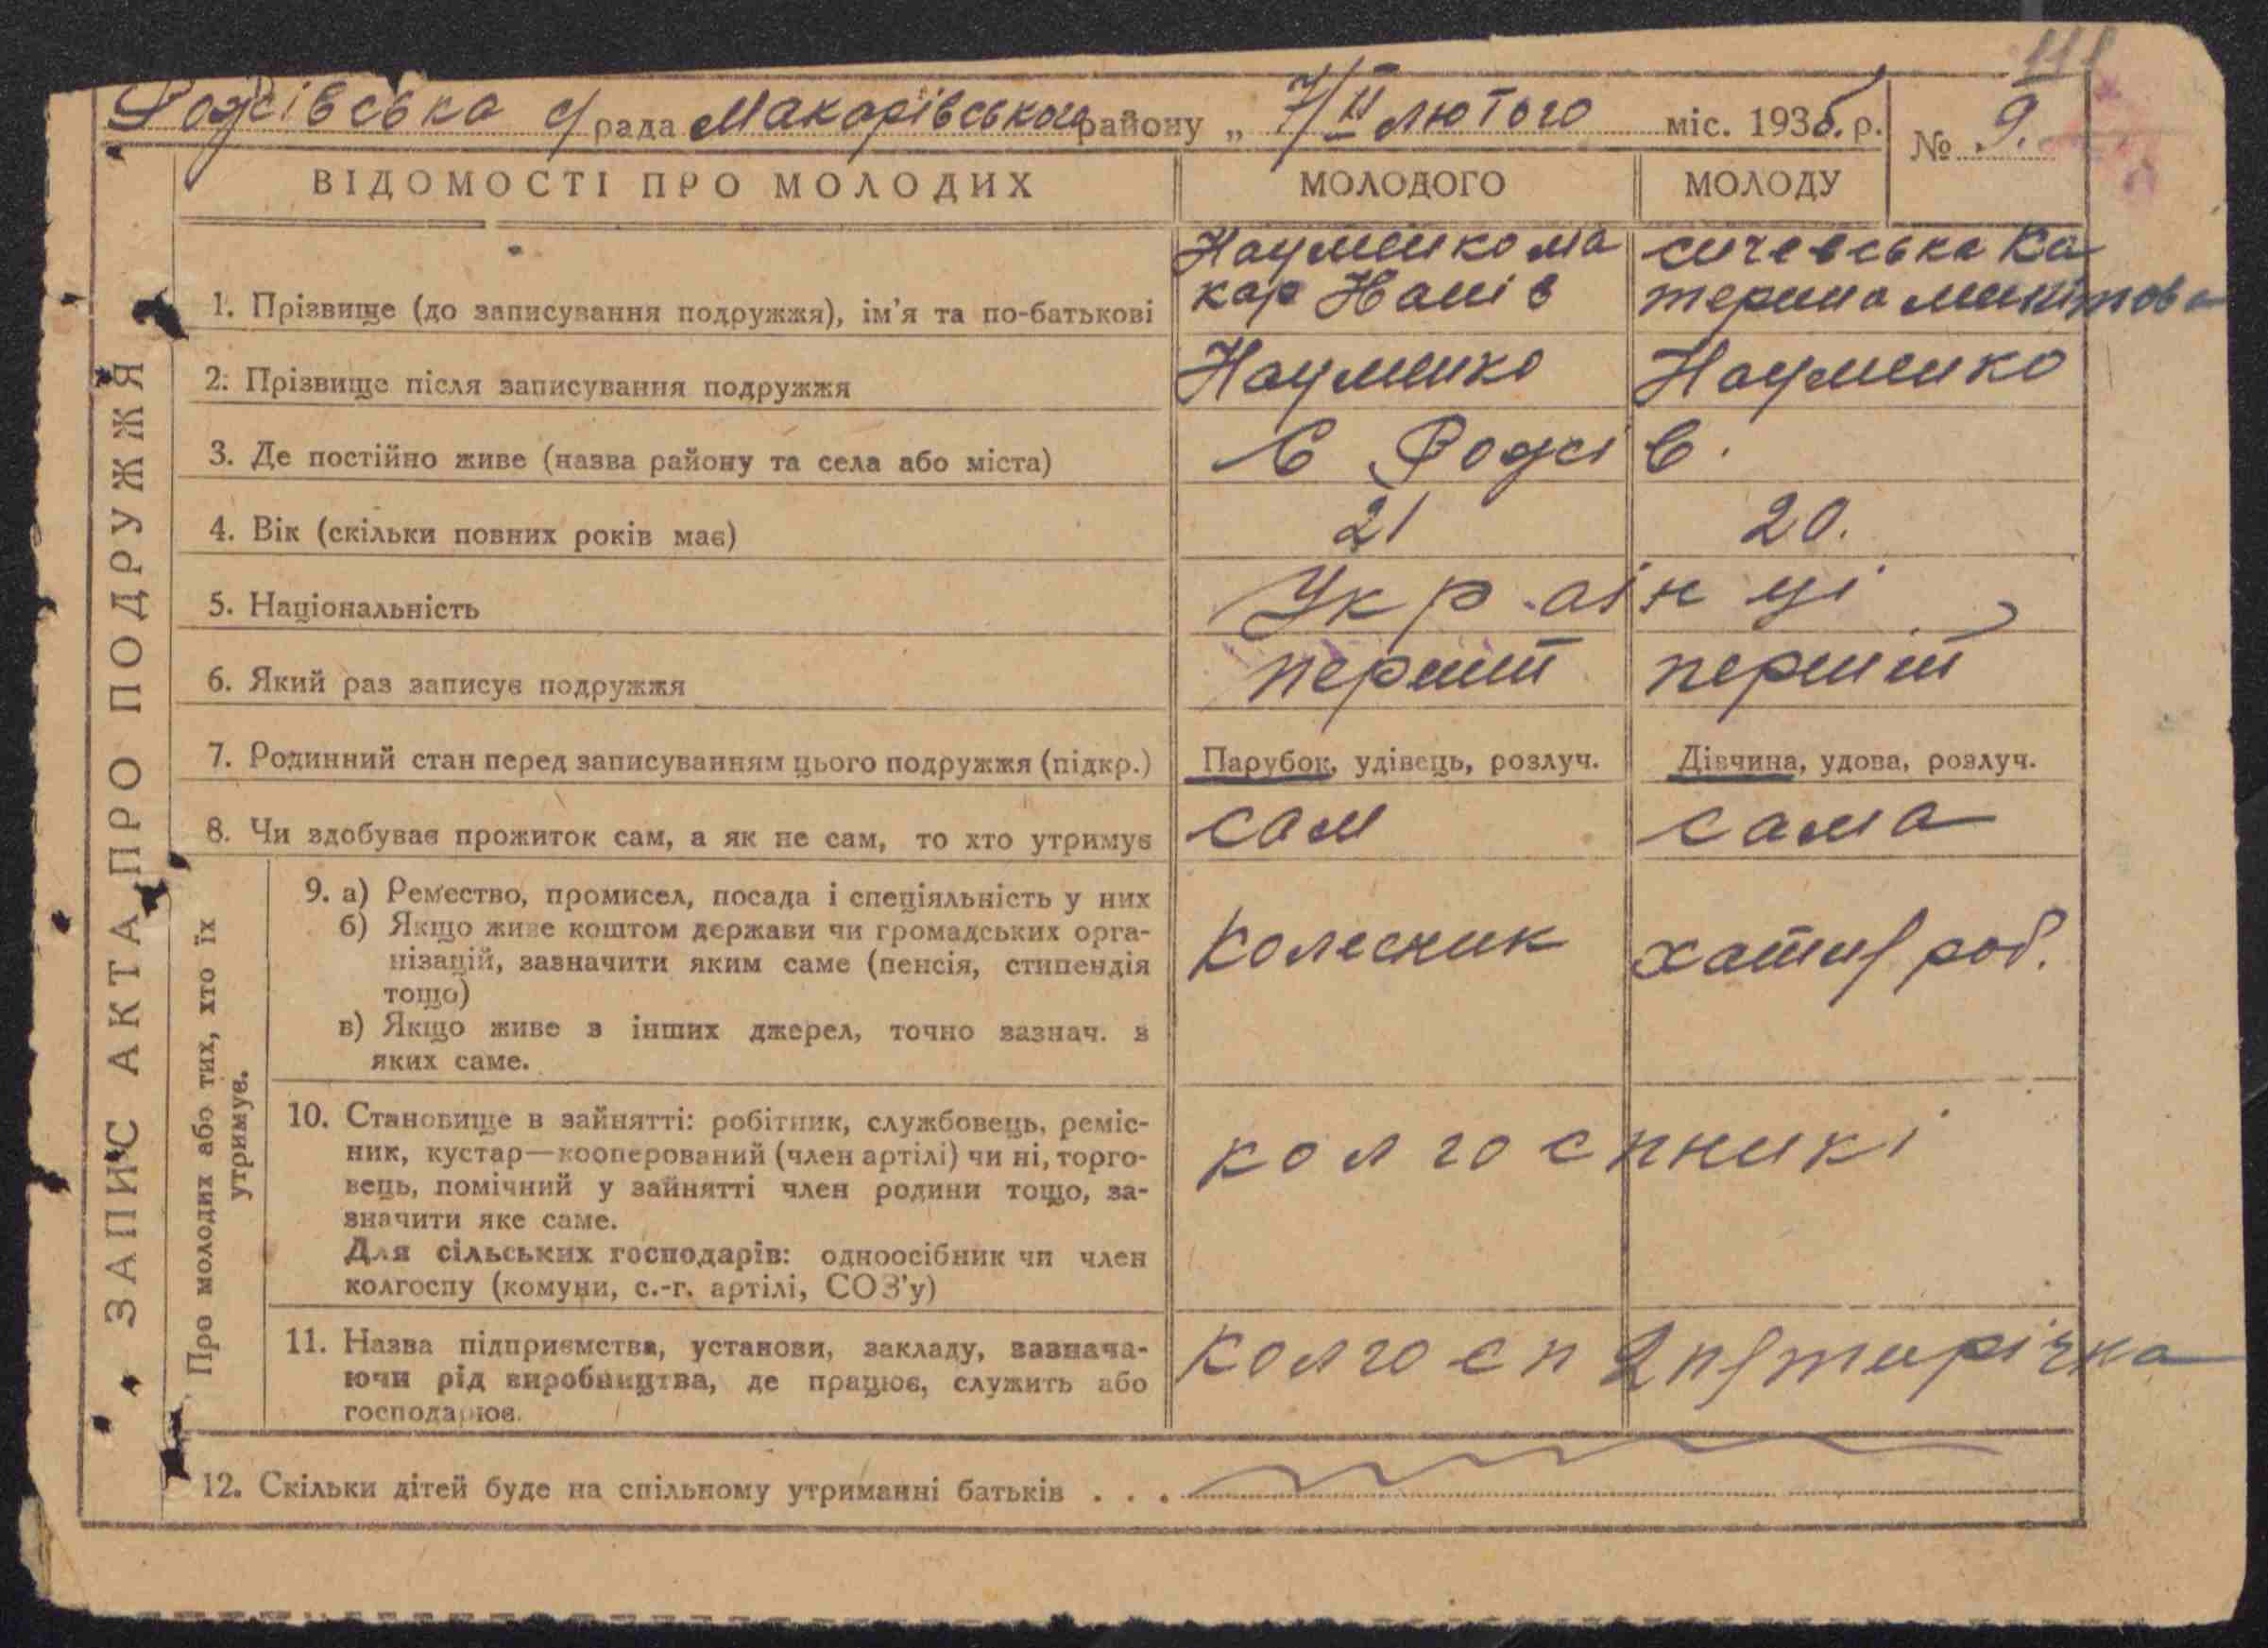 Рожівська с/рада Макарівського району „ 7/II лютого міс. 1935. р.
№ 9.
ВІДОМОСТІ ПРО МОЛОДИХ
МОЛОДОГО
МОЛОДУ
ЗАПИС АКТА ПРО ПОДРУЖЖЯ
1. Прізвище (до записування подружжя), ім'я та по-батькові
Науменко Ма
кар Нанів
Сичевська Ка
терина Микитова
2. Прізвище після записування подружжя
Науменко
Науменко
3. Де постійно живе (назва району та села або міста)
С Рожів.
4. Вік (скільки повних років має)
21
20.
5. Національність
Украінці
6. Який раз записує подружжя
перший
перший
7. Родинний стан перед записуванням цього подружжя (підкр.)
Парубок, удівець, розлуч.
Дівчина, удова, розлуч.
8. Чи здобуває прожиток сам, а як не сам, то хто утримує
сам
сама
Про молодих або тих, хто їх
утримує.
9. а) Ремество, промисел, посада і спеціяльність у них
б) Якщо живе коштом держави чи громадських орга-
нізацій, зазначити яким саме (пенсія, стипендія
тощо)
в) Якщо живе з інших джерел, точно зазнач. з
яких саме.
Колесник
хатня роб.
10. Становище в зайнятті: робітник, службовець, реміс-
ник, кустар—кооперований (член артілі) чи ні, торго-
вець, помічний у зайнятті член родини тощо, за-
значити яке саме.
Для сільських господарів: одноосібник чи член
колгоспу (комуни, с.-г. артілі, СОЗ'у)
колгоспникі
11. Назва підприємства, установи, закладу, зазнача-
ючи рід виробництва, де працює, служить або
господарює.
Колгосп 2 п/тирічка
12. Скільки дітей буде на спільному утриманні батьків . . .